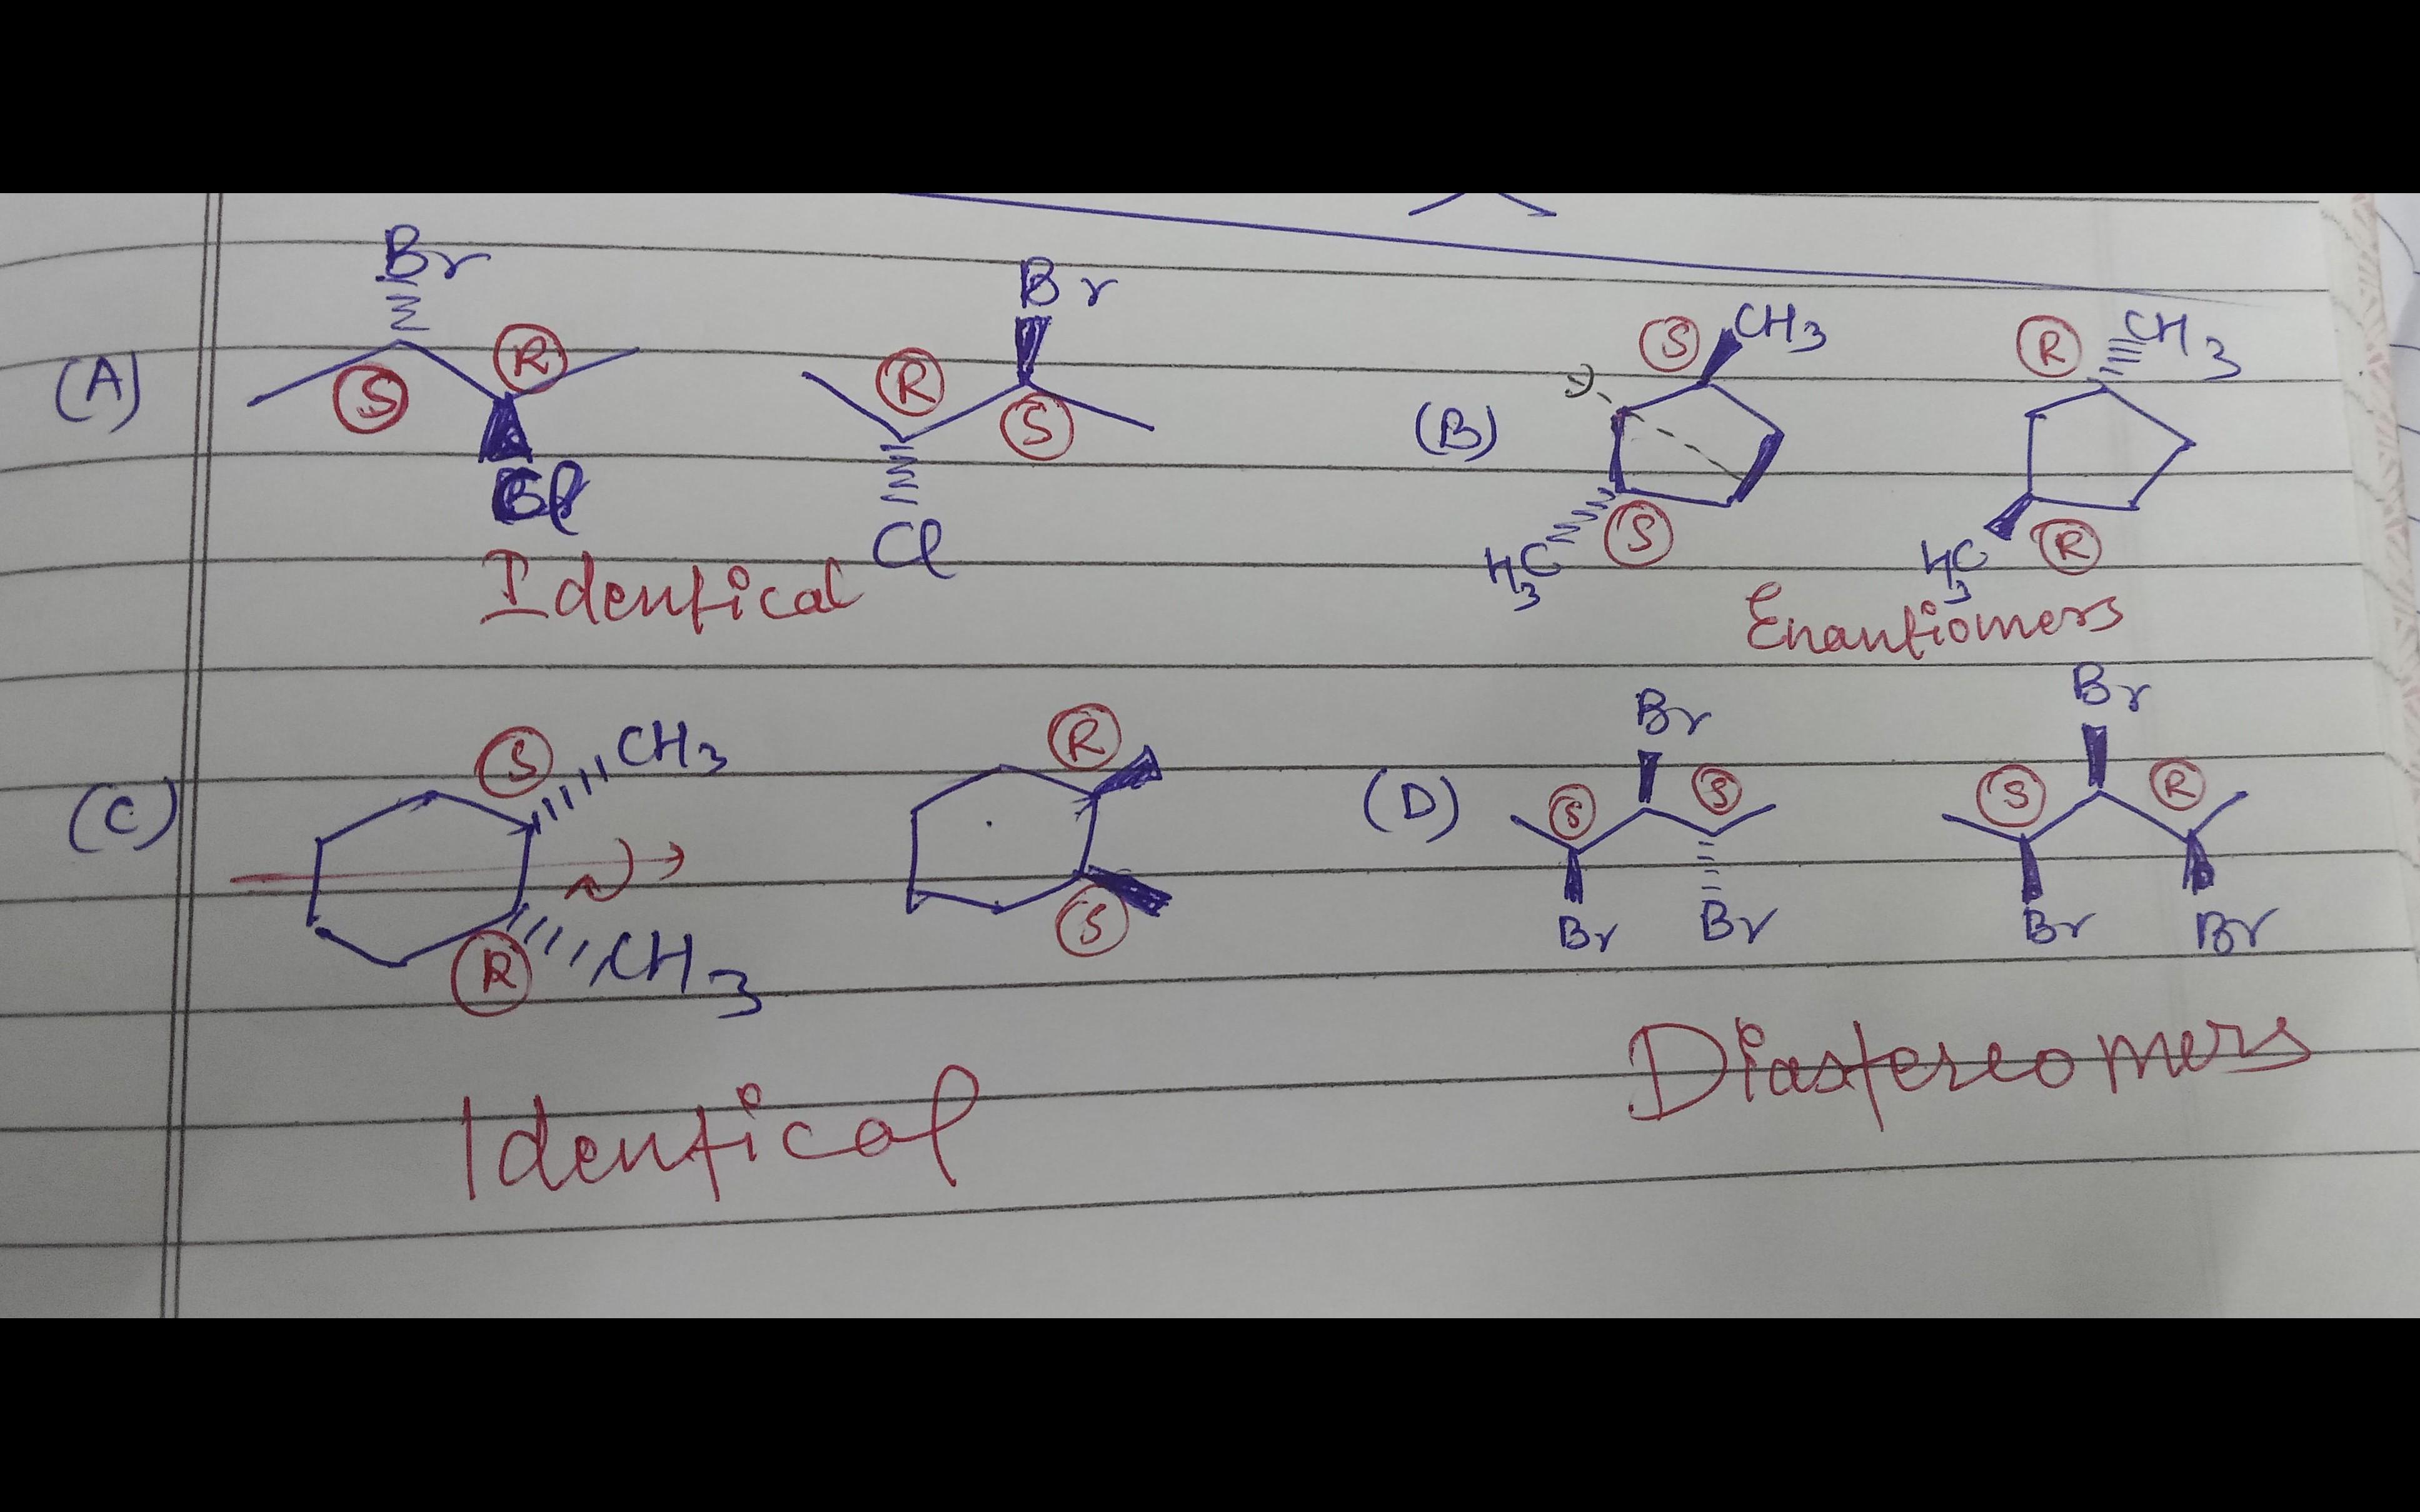 Br
Br
(A)
S
R
R
S
Cl
Identical
(B)
S
CH3
R
CH3
H3C
S
H3C
R
Enantiomers
(C)
S
CH3
R
CH3
R
S
Identical
(D)
Br
S
S
Br
Br
Br
S
R
Br
Br
Diastereomers